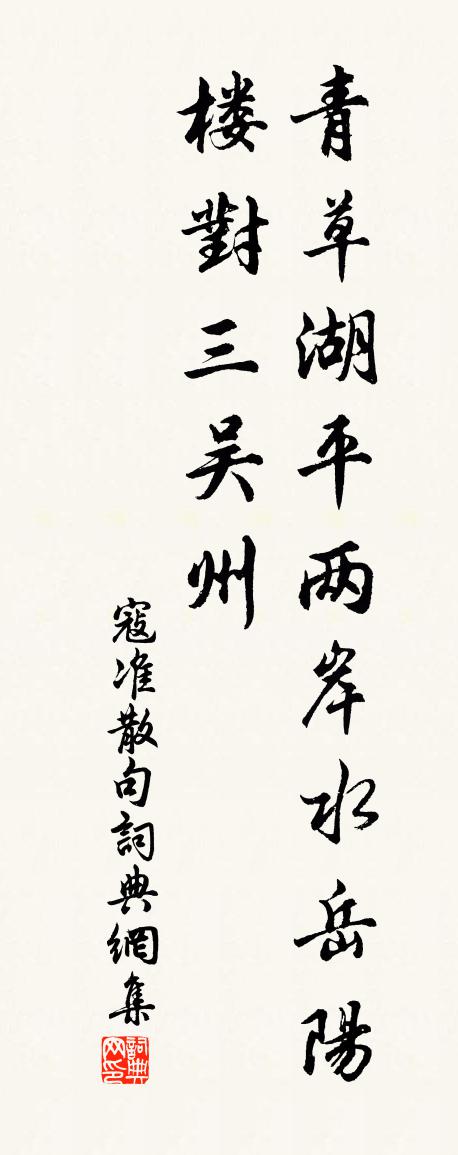 青草湖平两岸水岳陽
楼對三吴州
寇准散句詞典網集
詞典网印